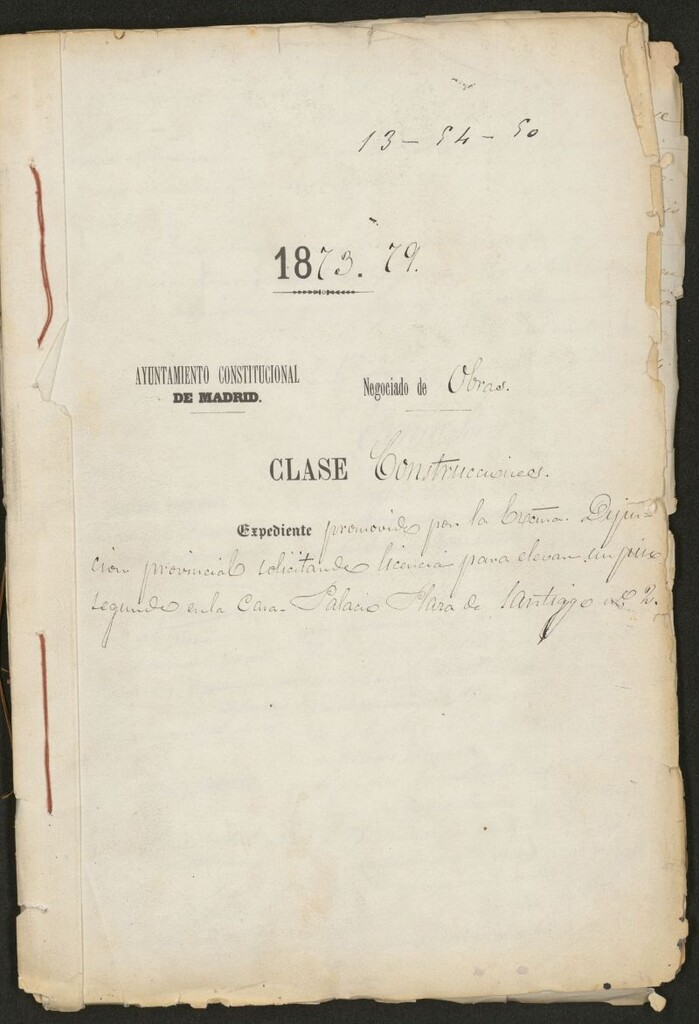 13-54-50
1873. 79.
AYUNTAMIENTO CONSTITUCIONAL
DE MADRID.
Negociado de Obras.
CLASE Construcciones.
Expediente promovido por la Excma. Diputa-
cion provincial solicitando licencia para elevar un piso
segundo en la Casa-Palacio Plaza de Santiago nº 2.